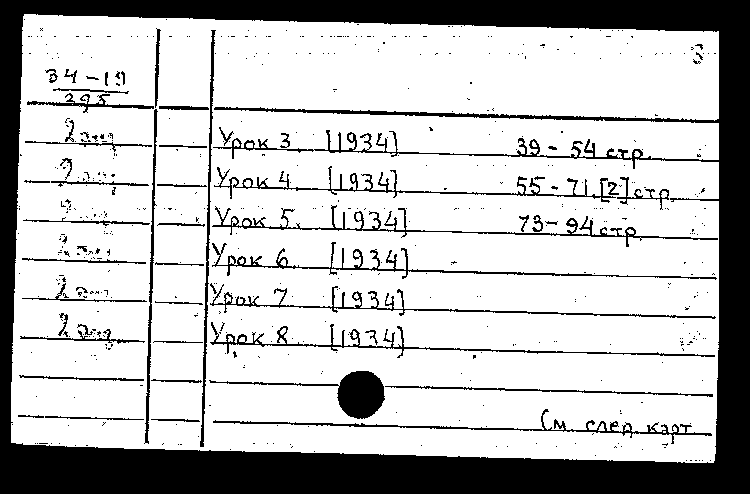 3
34-19
295
2 экз Урок 3 [1934] 39 - 54 стр.
2 экз Урок 4 [1934] 55 - 71, [2] стр.
2 экз Урок 5. [1934] 73 - 94 стр.
2 экз Урок 6 [1934]
2 экз Урок 7 [1934]
2 экз Урок 8 [1934]
См. след. карт.